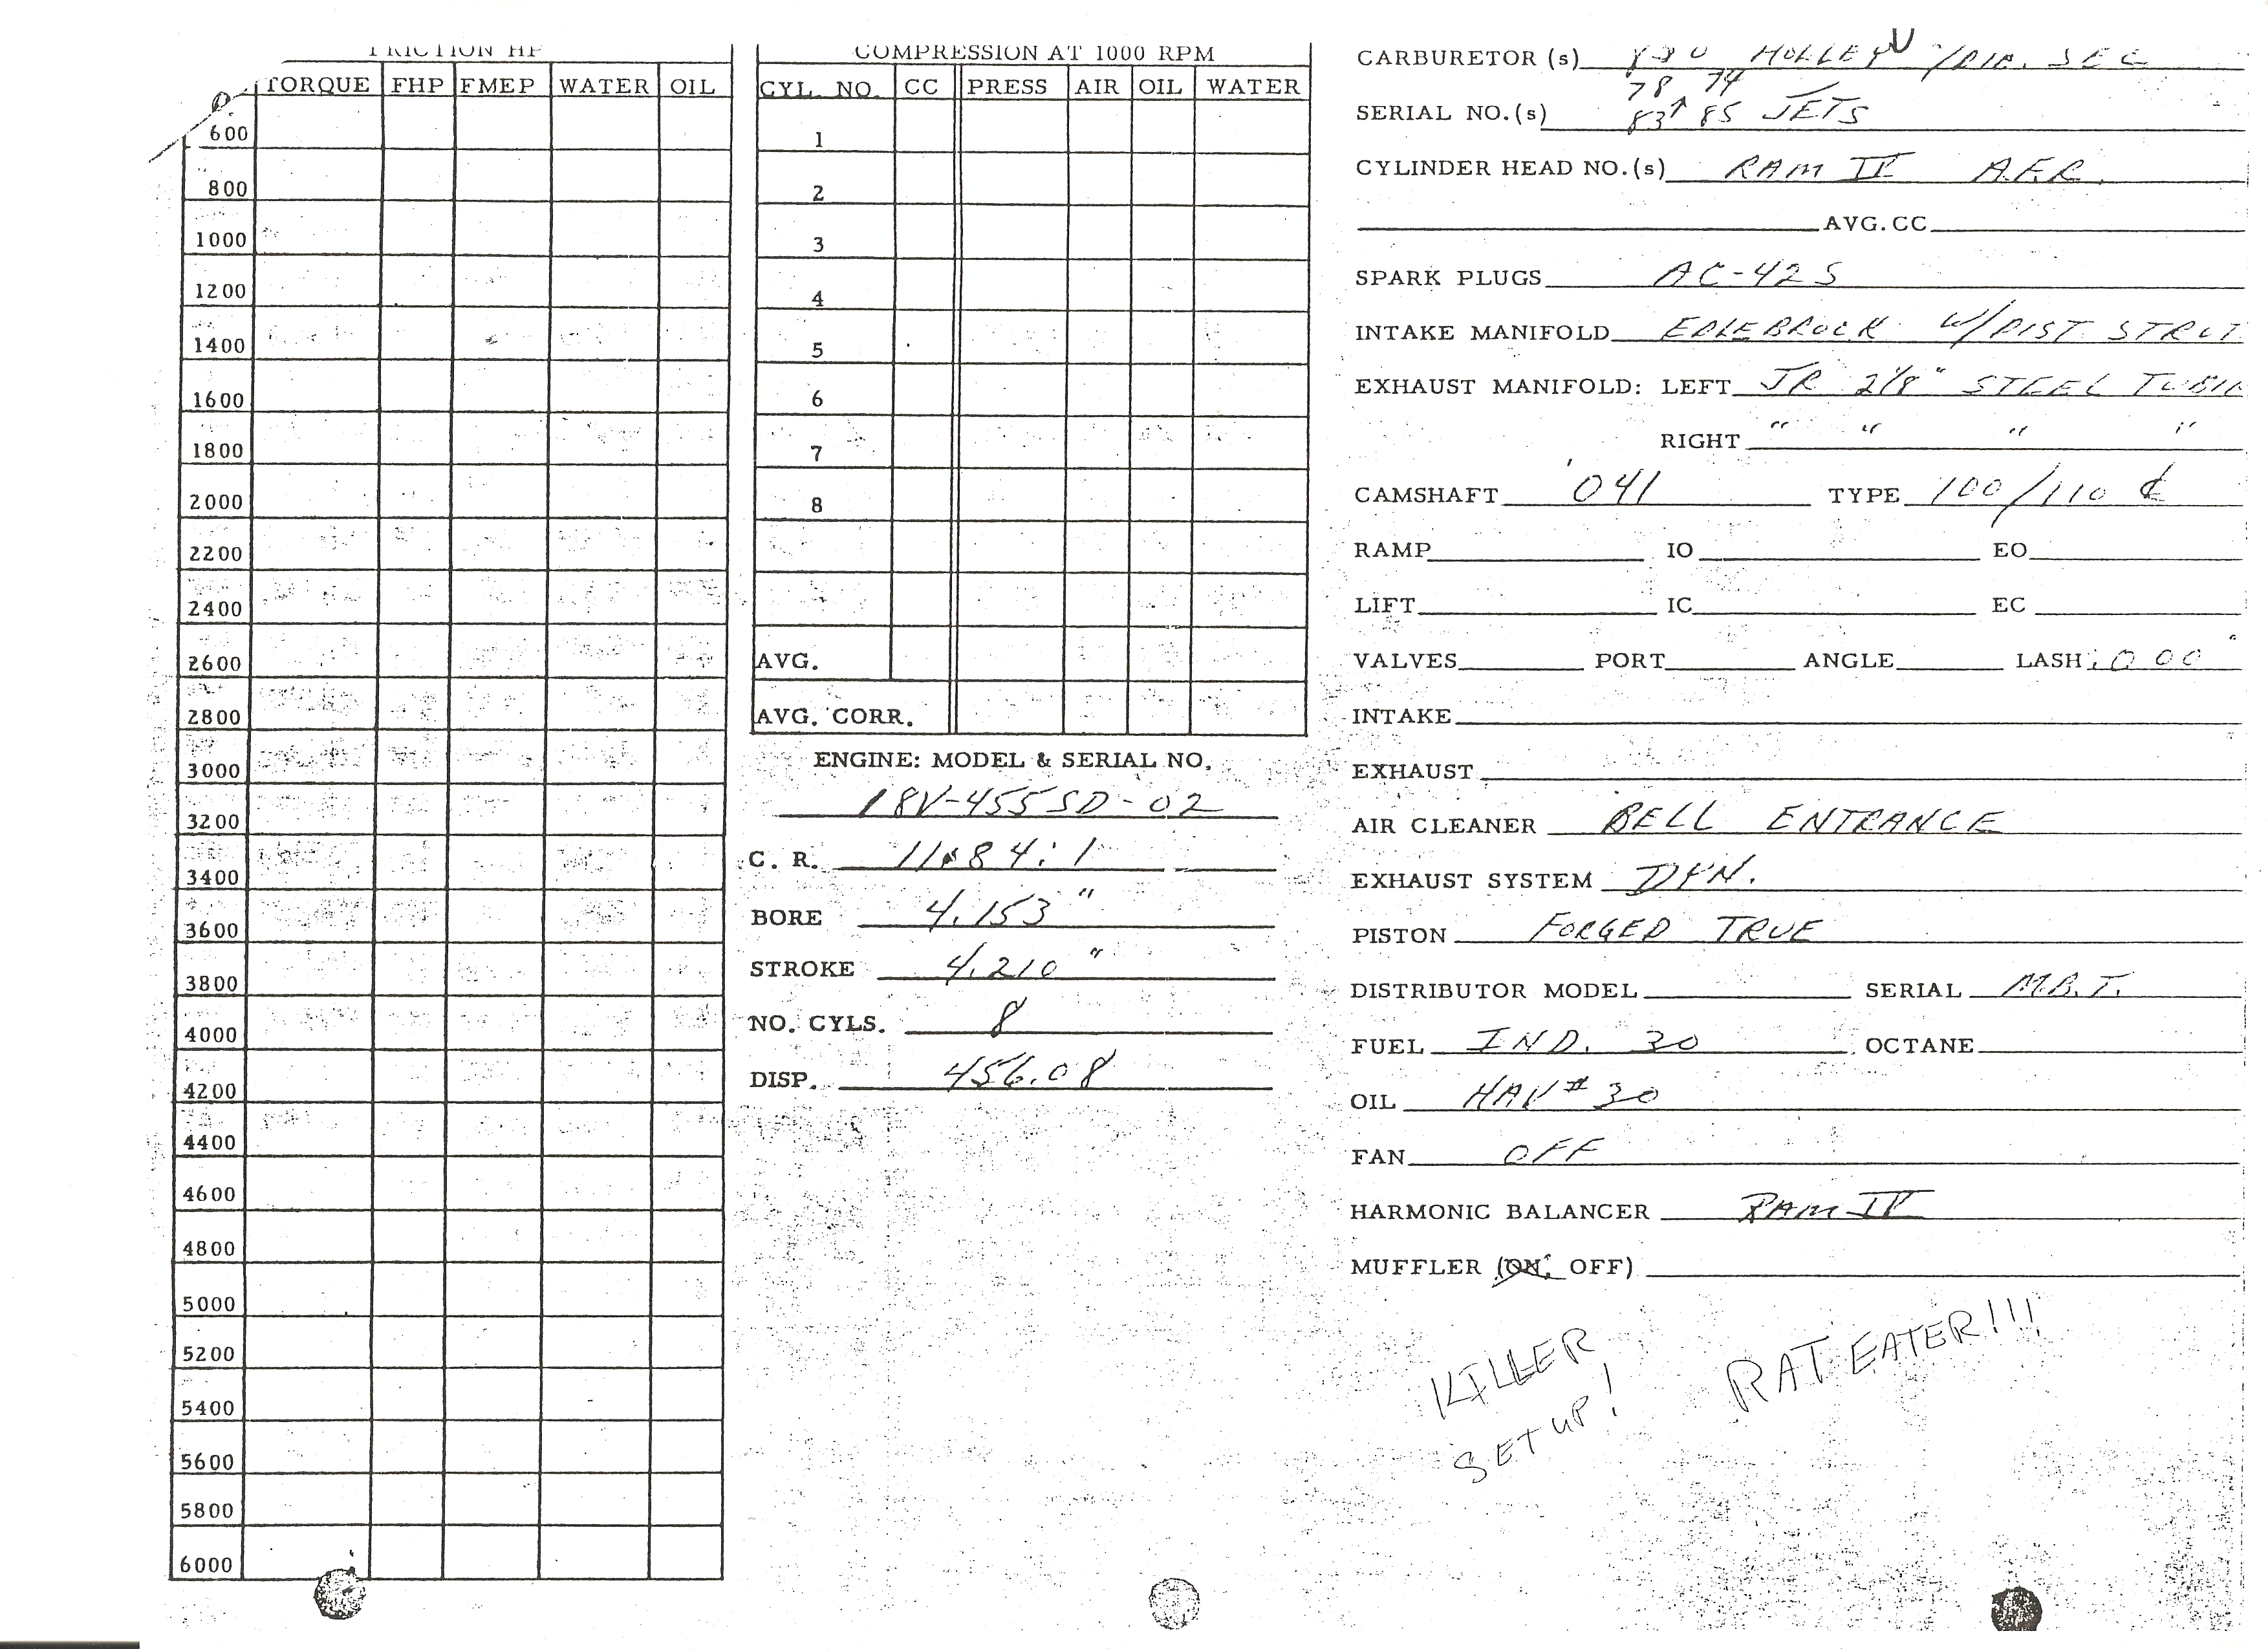 FRICTION HP
TORQUE FHP FMEP WATER OIL
600
800
1000
1200
1400
1600
1800
2000
2200
2400
2600
2800
3000
3200
3400
3600
3800
4000
4200
4400
4600
4800
5000
5200
5400
5600
5800
6000
COMPRESSION AT 1000 RPM
CYL. NO. CC PRESS AIR OIL WATER
1
2
3
4
5
6
7
8
AVG.
AVG. CORR.
ENGINE: MODEL & SERIAL NO.
18V-455SD-02
C. R. 11.84:1
BORE 4.153"
STROKE 4.210"
NO. CYLS. 8
DISP. 456.08
CARBURETOR (s) HOLLEY SEC
78 74
SERIAL NO.(s) 83↑ 85 JETS
CYLINDER HEAD NO.(s) RAM IV A.F.R.
AVG. CC
SPARK PLUGS AC-42S
INTAKE MANIFOLD EDLEBROCK W/DIST STRUT
EXHAUST MANIFOLD: LEFT JR 2 1/8" STEEL TUBIN
RIGHT " " " "
CAMSHAFT '041 TYPE 100/110 ℄
RAMP IO EO
LIFT IC EC
VALVES PORT ANGLE LASH .000"
INTAKE
EXHAUST
AIR CLEANER BELL ENTRANCE
EXHAUST SYSTEM DYN.
PISTON FORGED TRUE
DISTRIBUTOR MODEL SERIAL M.B.T.
FUEL IND. 30 OCTANE
OIL HAV #30
FAN OFF
HARMONIC BALANCER RAM IV
MUFFLER (ON, OFF)
KILLER
SET UP!
RAT EATER!!!